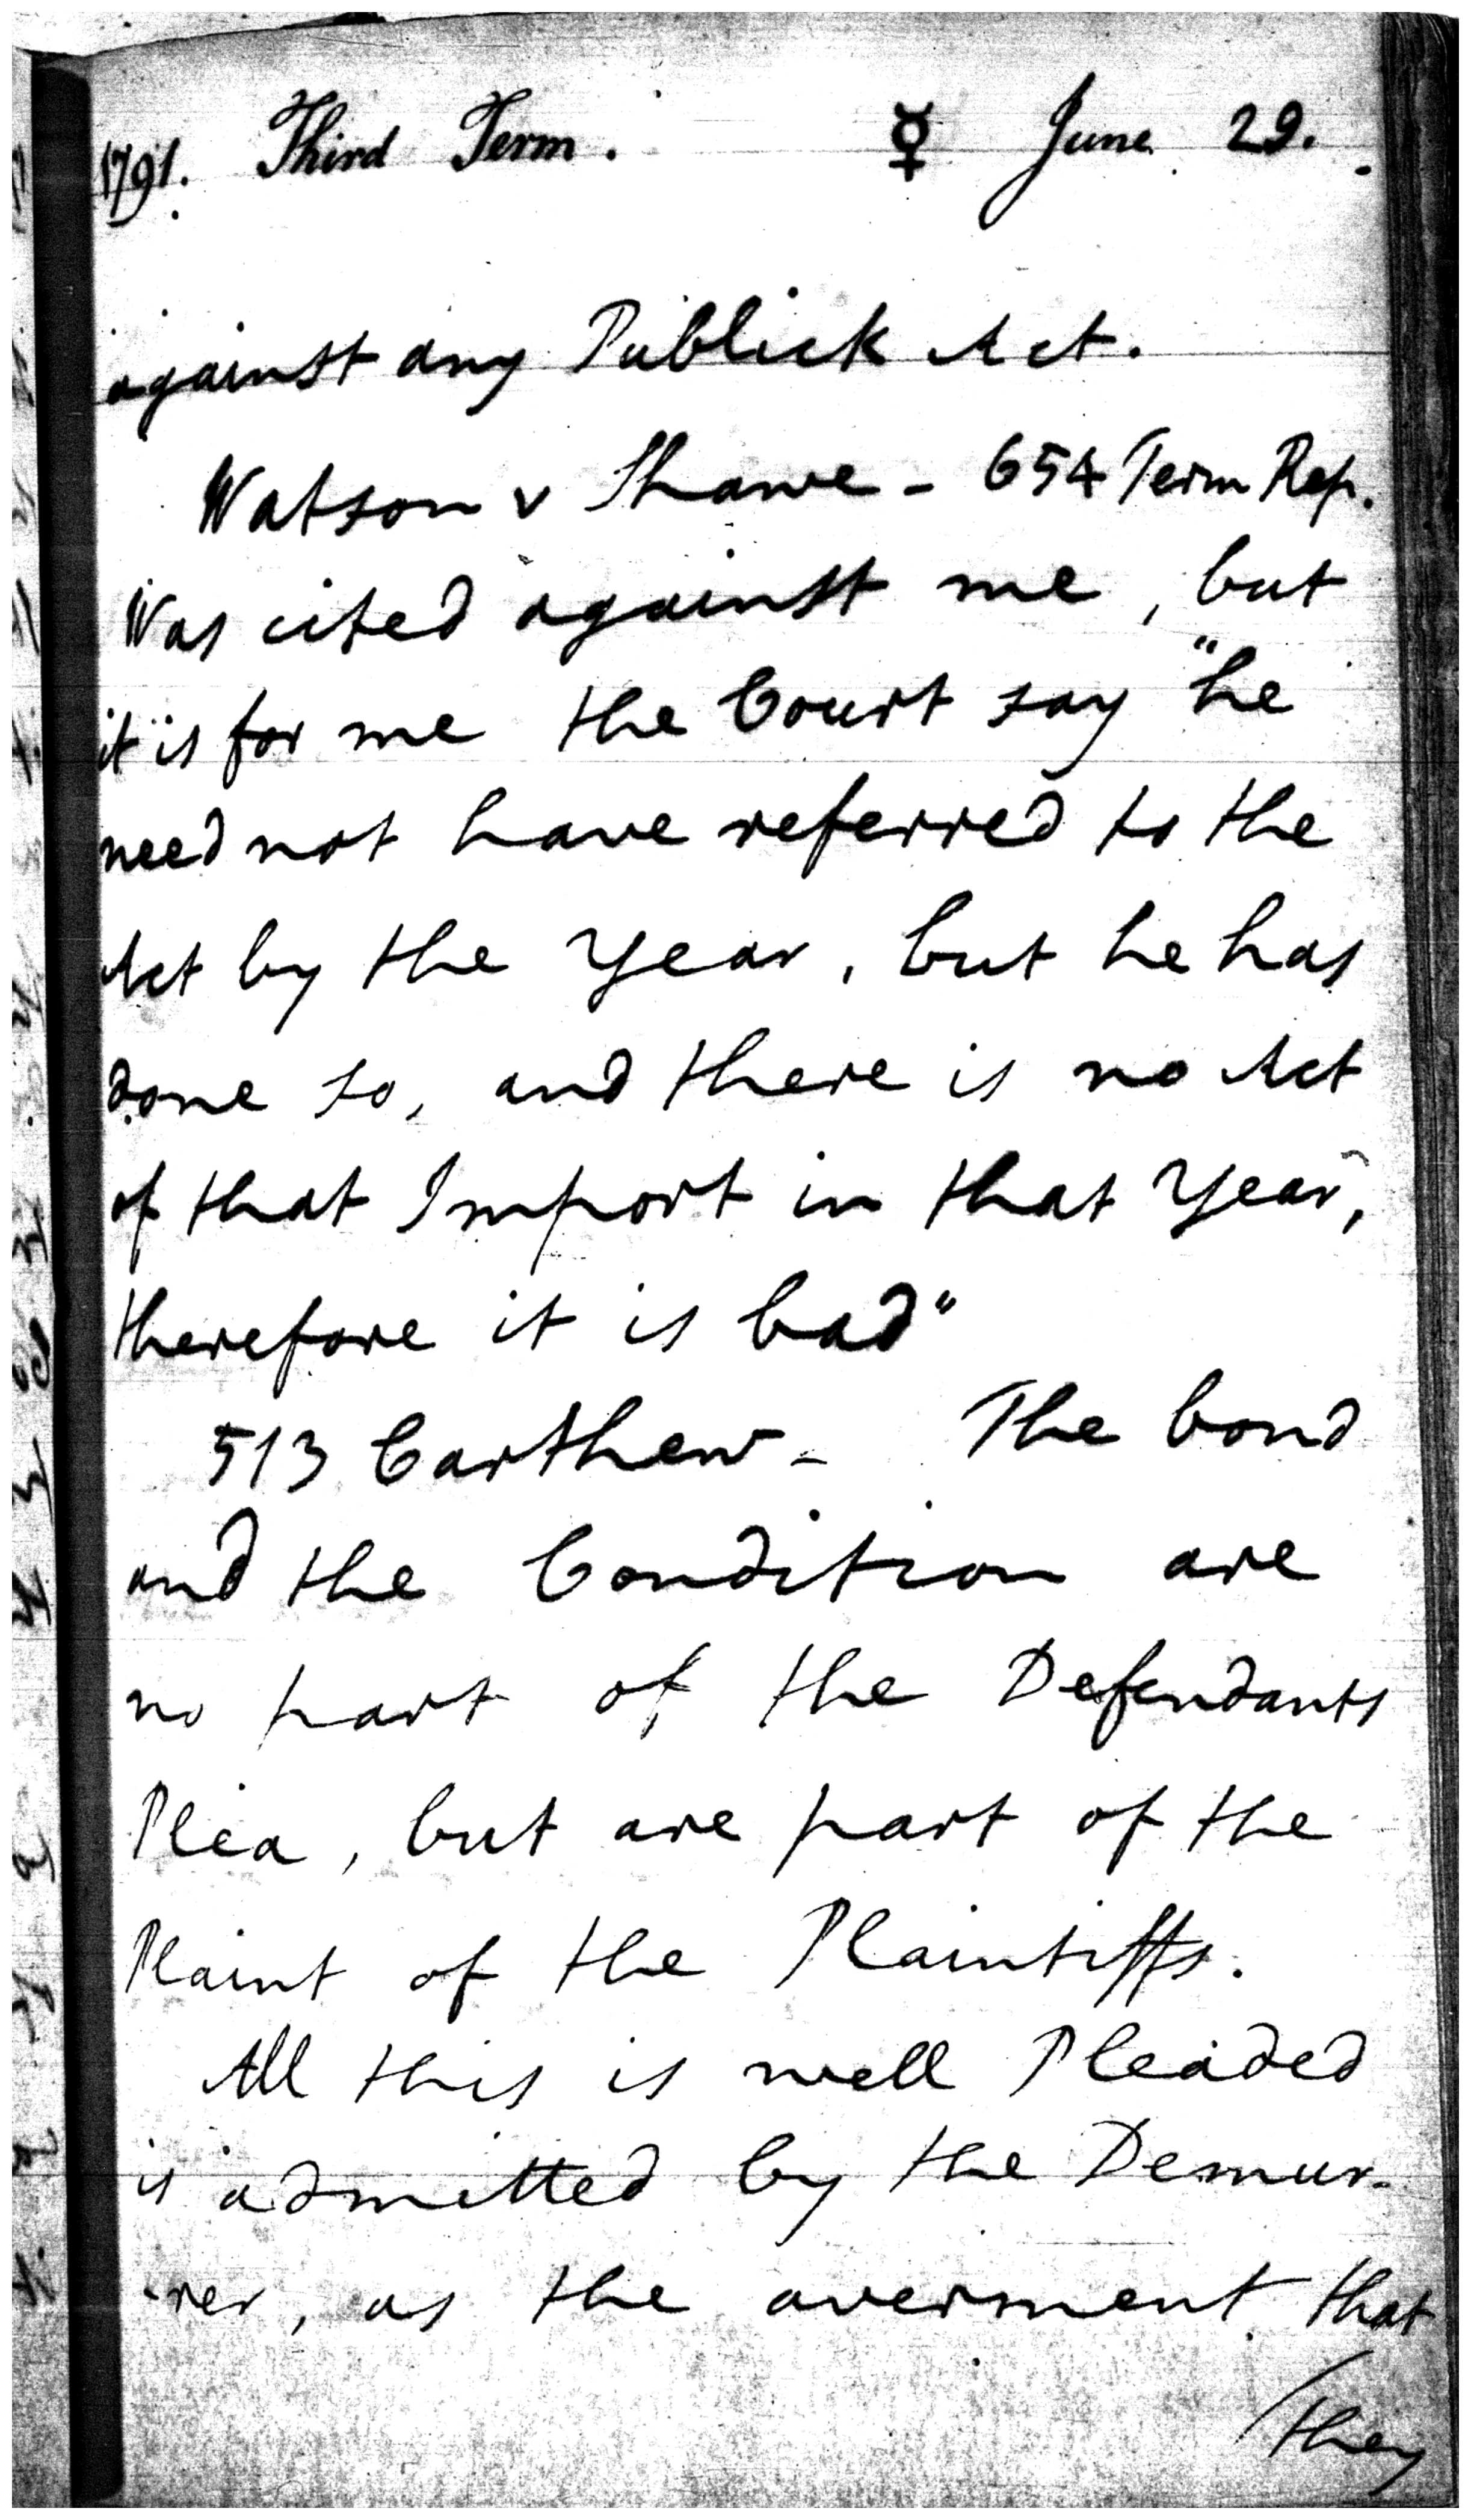 1791. Third Term. ☿ June 29.
against any Publick Act.
Watson v Shawe - 654 Term Rep.
Was cited against me, but
it is for me the Court say "he
need not have referred to the
Act by the Year, but he has
done so, and there is no Act
of that Import in that Year,
therefore it is bad"
513 Carthew - The bond
and the Condition are
no part of the Defendants
Plea, but are part of the
Plaint of the Plaintiffs.
All this is well Pleaded
is admitted by the Demur-
-rer, as the averment that
they